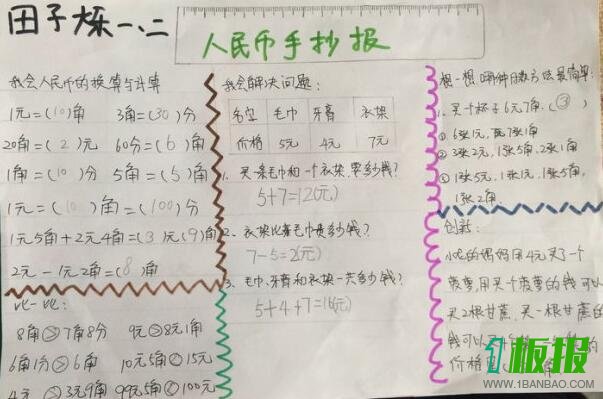 田子烁一、二
人民币手抄报
我会人民币的换算与计算
1元=(10)角 3角=(30)分
20角=(2)元 60分=(6)角
1角=(10)分 5角=(5)角
1元=(10)角=(100)分
1元5角+2元4角=(3)元(9)角
2元-1元2角=(8)角
比一比:
8角>7角8分 9元>8元1角
6角1分>6角 10元5角<15元
4元 > 3元9角 99元5角<100元
我会解决问题:
名称 毛巾 牙膏 衣架
价格 5元 4元 7元
1、买一条毛巾和一个衣架,要多少钱?
5+7=12(元)
2、衣架比毛巾贵多少钱?
7-5=2(元)
3、毛巾、牙膏和衣架一共多少钱?
5+4+7=16(元)
想一想哪种付款方法最简单:
1、买一个杯子6元7角。(③)
① 6张1元,7张1角
② 3张2元,1张5角,2张1角
③ 1张5元,1张1元,1张5角,
1张2角
创新:
小松的妈妈用4元买了一个
菠萝,用买一个菠萝的钱可以
买2根甘蔗,买一根甘蔗的
钱可以
的
价格是 角
1板报
WWW.1BANBAO.COM